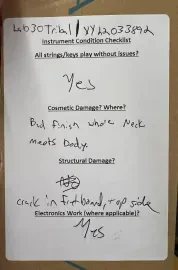 Instrument Condition Checklist
All strings/keys play without issues?
Yes
Cosmetic Damage? Where?
Bad finish where Neck
meets body
Structural Damage?
crack in fretboard, top side
Electronics Work (where applicable)?
Yes